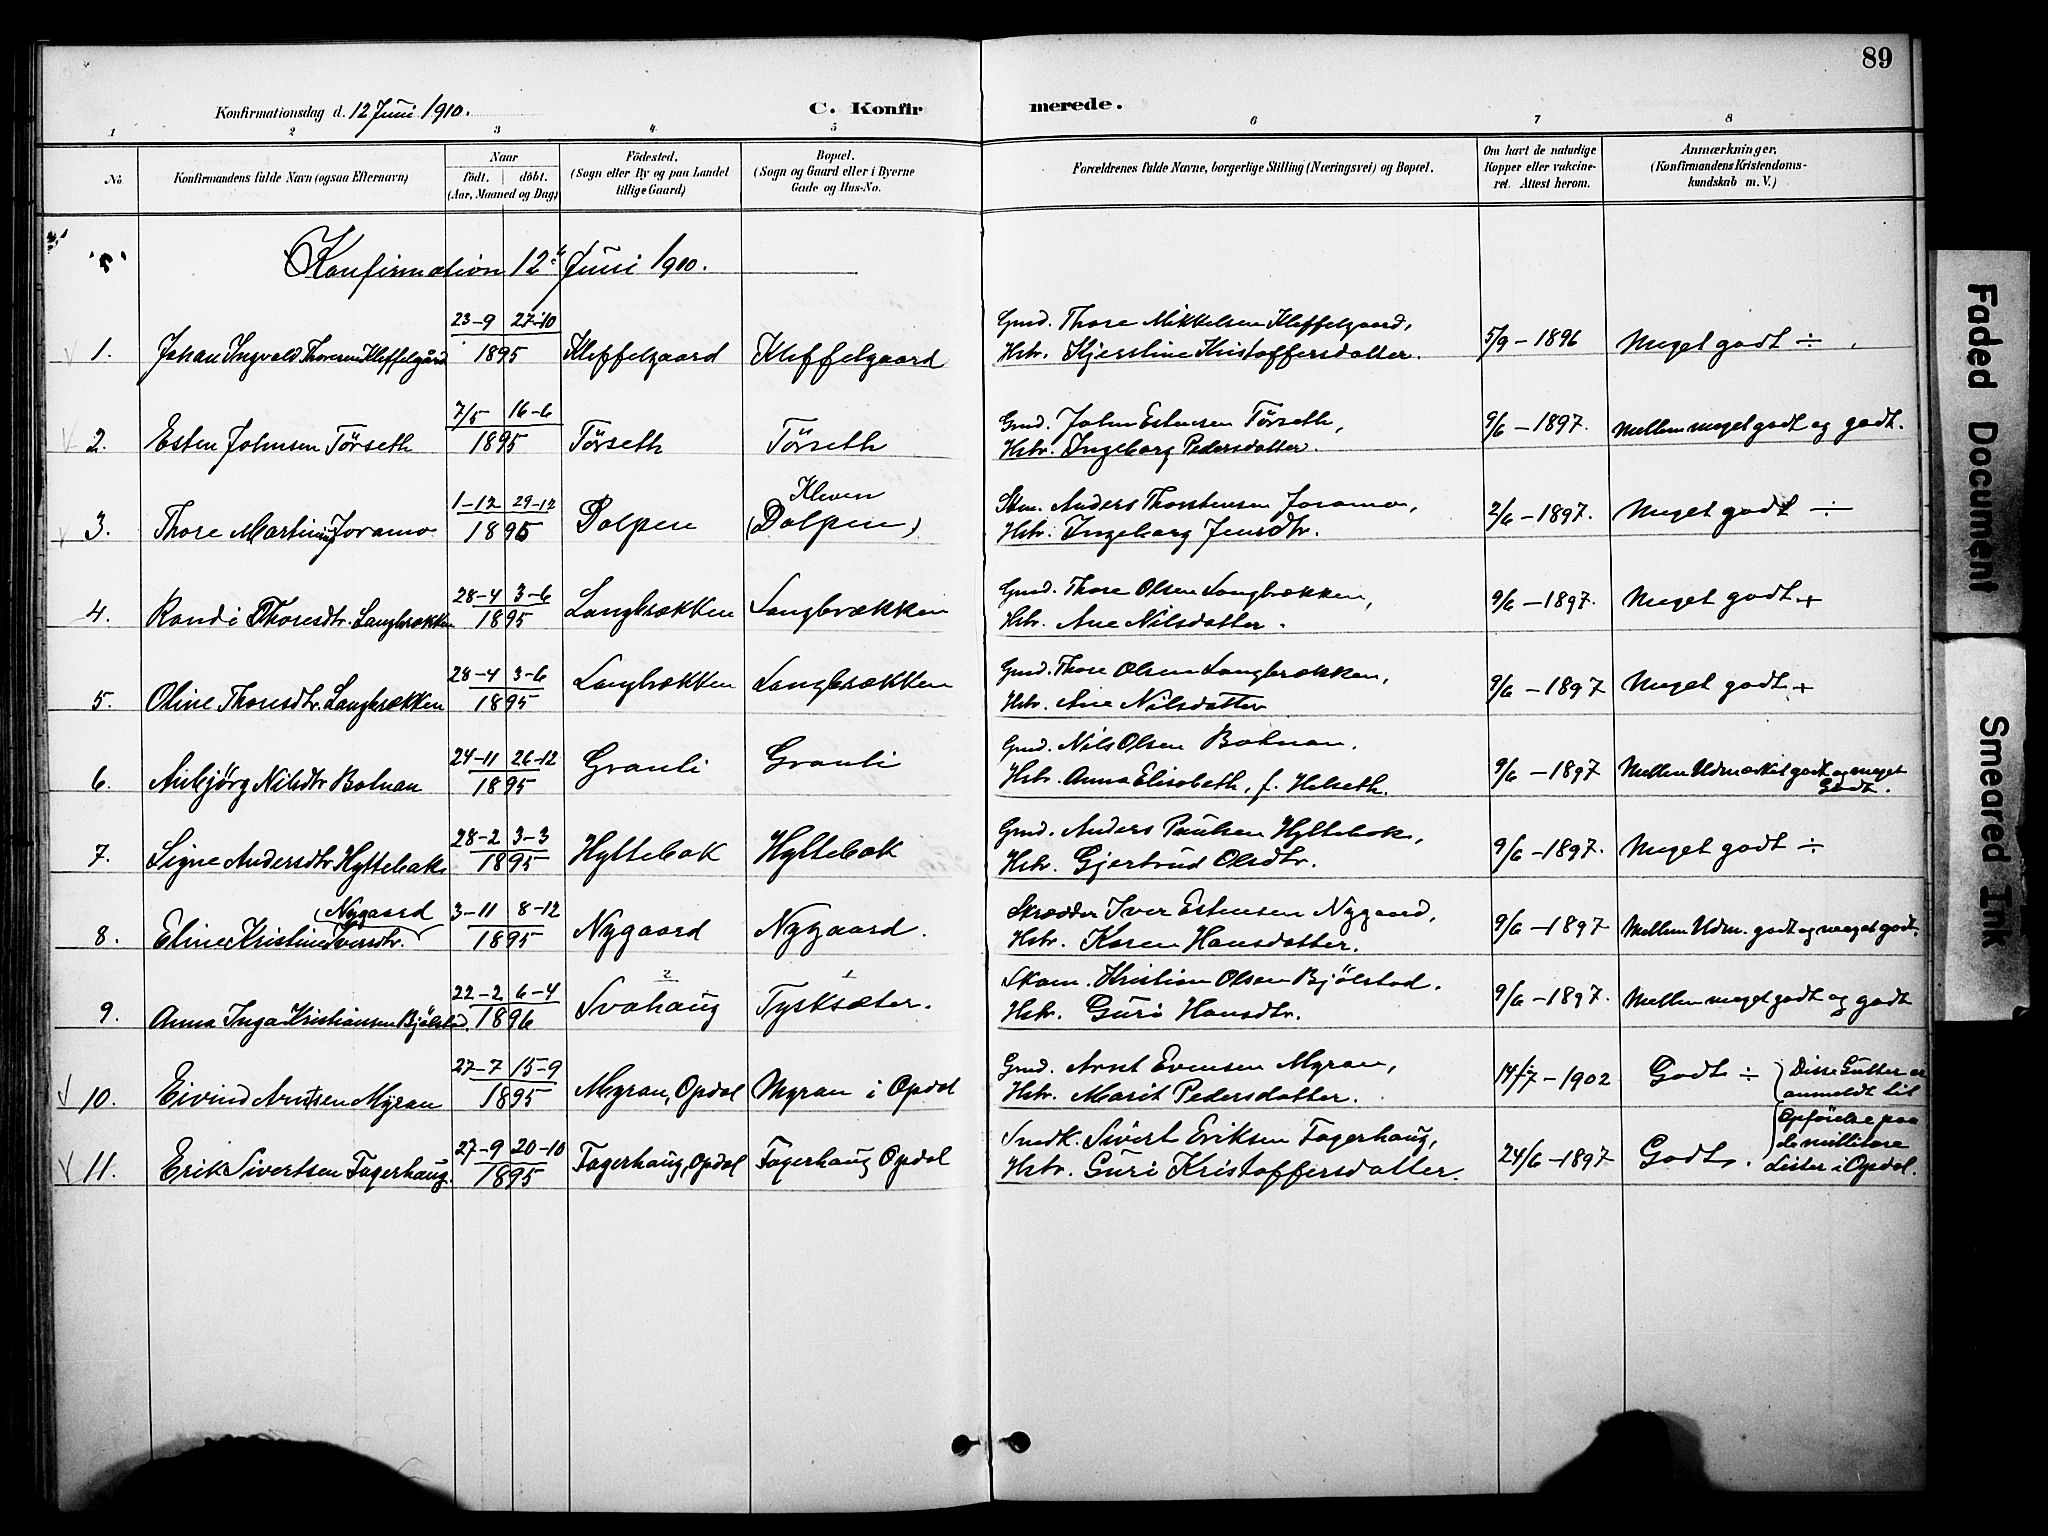 89
Konfirmationsdag d. 12 Juni 1910.
C. Konfir
merede.
1 2 3 4 5 6 7 8
No
Konfirmandens fulde Navn (ogsaa Efternavn)
Naar
födt. döbt.
(Aar, Maaned og Dag)
Födested.
(Sogn eller By og paa Landet
tillige Gaard)
Bopæl.
(Sogn og Gaard eller i Byerne
Gade og Hus-No.
Forældrenes fulde Navne, borgerlige Stilling (Næringsvei) og Bopæl.
Om havt de naturlige
Kopper eller vakcine-
ret. Attest herom.
Anmærkninger,
(Konfirmandens Kristendoms-
kundskab m. V.)
Konfirmation 12te Juni 1910.
23-9 27-10
1. Johan Ingvald Thoresen Kleffelgård 1895 Kleffelgaard Kleffelgaard
Gmd. Thore Mikkelsen Kleffelgaard,
Hstr. Kjerstine Kristoffersdatter.
5/9 - 1896 Meget godt ÷
7/5 16-6
2. Esten Johnsen Törseth 1895 Törseth Törseth
Gmd. John Estensen Törseth,
Hstr. Ingeborg Pedersdatter.
9/6 - 1897. Mellem meget godt og godt.
1-12 29-12
3. Thore Martinus Joramo 1895 Dalpen Kleven
(Dalpen)
Anders Thorstensen Joramo,
Hstr. Ingeborg Jensdtr.
2/6 - 1897. Meget godt ÷
28-4 3-6
4. Randi Thoresdtr. Langbrækken 1895 Langbrækken Langbrækken
Gmd. Thore Olsen Langbrækken,
Hstr. Ane Nilsdatter.
9/6 - 1897. Meget godt +
28-4 3-6
5. Oline Thoresdtr. Langbrækken 1895 Langbrækken Langbrækken
Gmd. Thore Olsen Langbrækken,
Hstr. Ane Nilsdatter
9/6 - 1897 Meget godt +
24-11 26-12
6. Anbjörg Nilsdtr Bolman 1895 Granli Granli
Gmd. Nils Olsen Bolman.
Hstr. Anna Elisabeth, f. Helseth.
9/6 - 1897 Mellem Udmærket godt og meget
Godt.
28-2 3-3
7. Signe Andersdtr Hyttebak 1895 Hyttebak Hyttebak
Gmd. Anders Paulsen Hyttebak,
Hstr. Gjertrud Olsdtr.
9/6 - 1897. Meget godt ÷
(Nygaard 3-11 8-12
8. Eline Kristine Iversdtr. 1895 Nygaard Nygaard.
Skrædder Iver Estensen Nygaard,
Hstr. Karen Hansdatter.
9/6 - 1897 Mellem Udm. godt og meget godt.
2 1
22-2 6-4
9. Anna Inga Kristiansen Bjölstad. 1896 Svahaug Tysksæter.
Skom. Kristian Olsen Bjölstad.
Hstr. Guri Hansdtr.
9/6 - 1897. Mellem meget godt og godt
27-7 15-9
10. Eivind Arntsen Myran 1895 Myran, Opdal Myran i Opdal
Gmd. Arnt Evensen Myran,
Hstr. Marit Pedersdatter.
14/7 - 1902 Godt ÷
Disse Gutter er
anmeldt til
Opförelse paa
de militære
Lister i Opdal.
27-9 20-10
11. Erik Sivertsen Fagerhaug. 1895 Fagerhaug, Opdal Fagerhaug Opdal
Smdk. Sivert Eriksen Fagerhaug,
Hstr. Guri Kristoffersdatter.
24/6 - 1897 Godt.
Faded Document
Smeared Ink